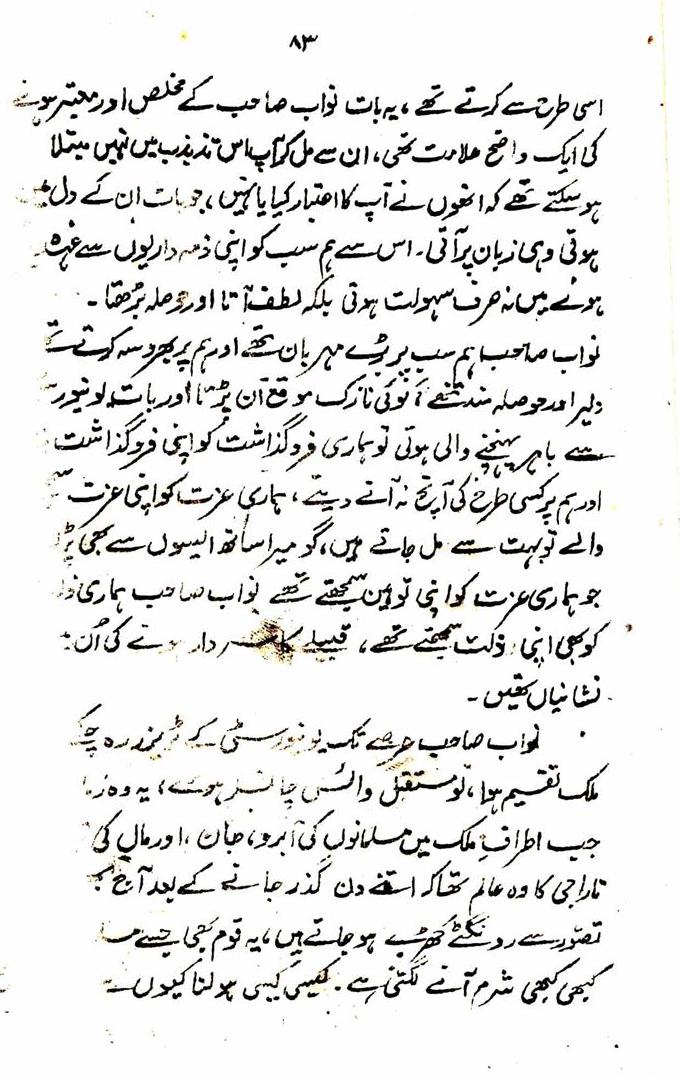 ۸۳
اسی طرح سے کرتے تھے، یہ بات نواب صاحب کے مخلص اور معتبر ہونے
کی ایک واضح علامت تھی، ان سے مل کر آپ اس تذبذب میں نہیں مبتلا
ہو سکتے تھے کہ انھوں نے آپ کا اعتبار کیا یا نہیں، جو بات ان کے دل میں
ہوتی وہی زبان پر آتی۔ اس سے ہم سب کو اپنی ذمہ داریوں سے عہدہ
ہونے میں نہ صرف سہولت ہوتی بلکہ لطف آتا اور حوصلہ بڑھتا۔
نواب صاحب ہم سب پر بڑے مہربان تھے اور ہم پر بھروسہ کرتے تھے
دلیر اور حوصلہ مند تھے، کوئی نازک موقع آن پڑتا اور بات یونیور
سے باہر پہنچنے والی ہوتی تو ہماری فروگذاشت کو اپنی فروگذاشت
اور ہم پر کسی طرح کی آنچ نہ آنے دیتے، ہماری عزت کو اپنی عزت
والے تو بہت سے مل جاتے ہیں، گو میرا ساتھ ایسوں سے بھی پڑا
جو ہماری عزت کو اپنی توہین سمجھتے تھے نواب صاحب ہماری
کو بھی اپنی ذلت سمجھتے تھے، قبیلے کا سردار ہونے کی ان
نشانیاں تھیں۔
نواب صاحب عرصے تک یونیورسٹی کے ٹریژر رہ چکے
ملک تقسیم ہوا، تو مستقل وائس چانسلر ہوئے، یہ وہ
جب اطرافِ ملک میں مسلمانوں کی آبرو، جان، اور مال کی
تاراجی کا وہ عالم تھا کہ اتنے دن گذر جانے کے بعد آج
تصوّر سے رونگٹے کھڑے ہو جاتے ہیں، یہ قوم بھی جسے
کبھی کبھی شرم آنے لگتی ہے۔ کیسی کیسی ہولناکیوں سے